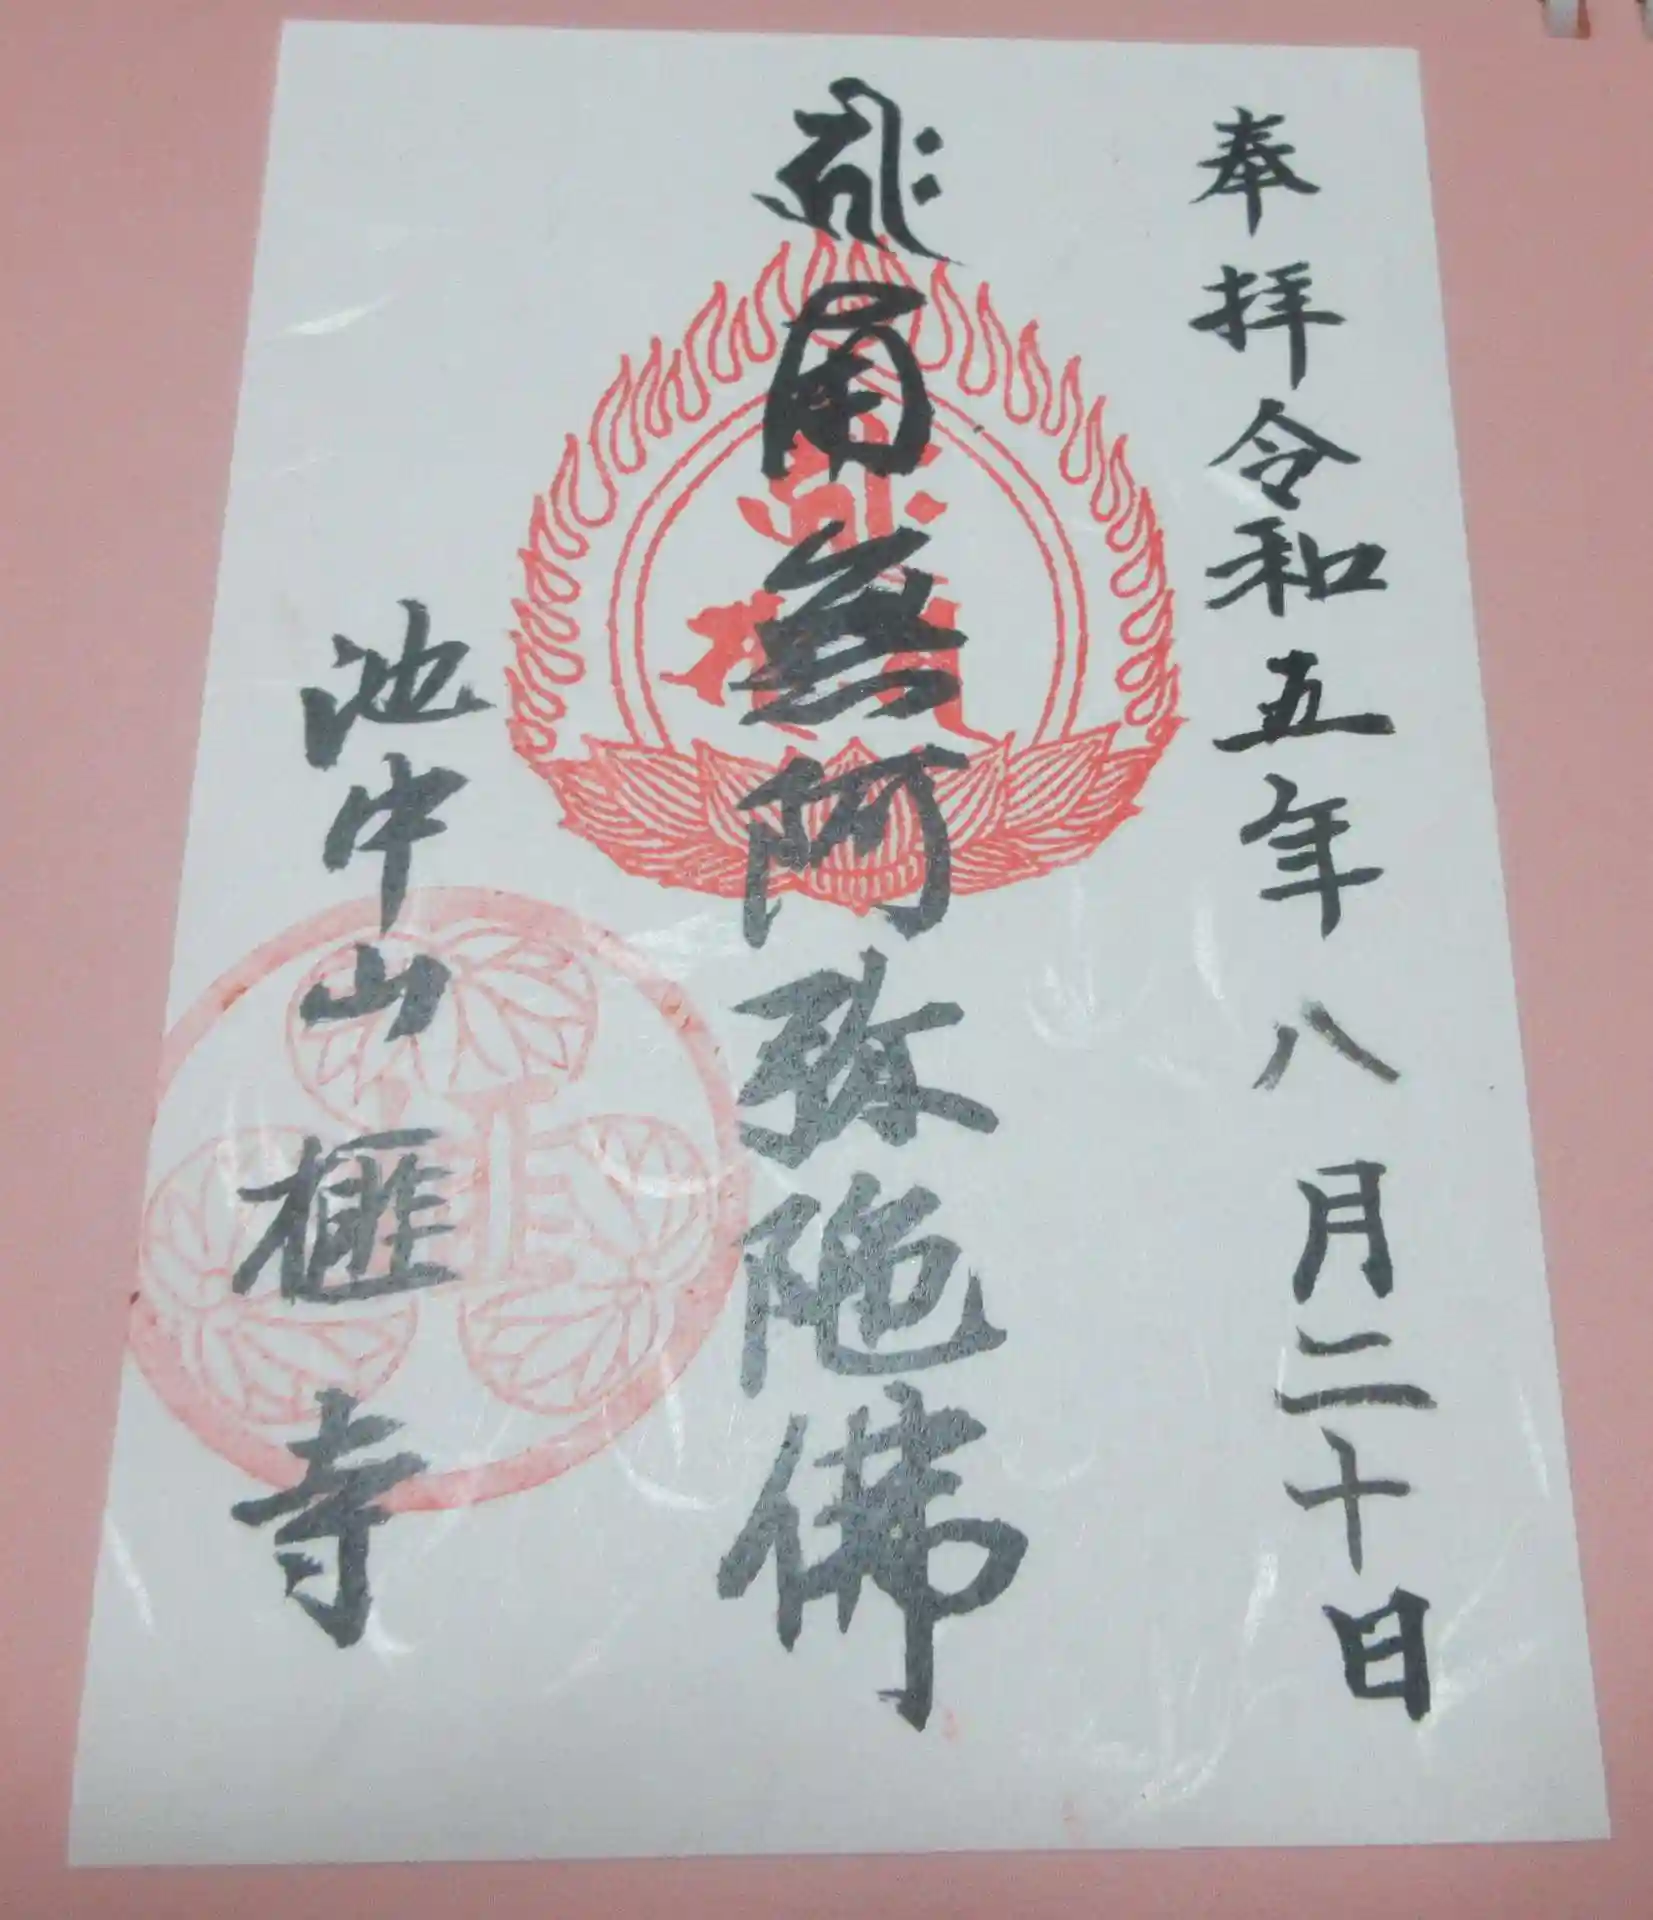 奉拝令和五年八月二十日
南無阿弥陀佛
池中山 榧寺